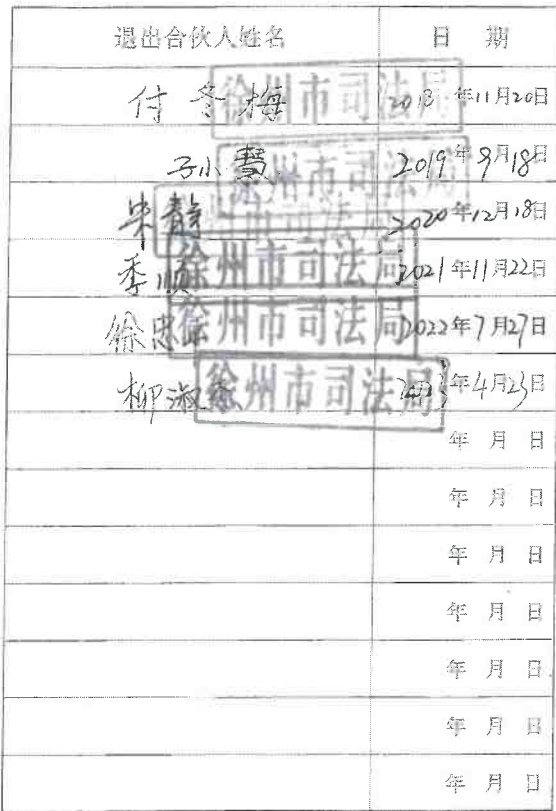 退出合伙人姓名 日 期
付冬梅 徐州市司法局 2018年11月20日
子小慧 徐州市司法局 2019年9月18日
宋静 州市司法 2020年12月18日
季顺 徐州市司法局 2021年11月22日
徐忠 徐州市司法局 2022年7月27日
柳淑 徐州市司法局 年4月23日
年 月 日
年 月 日
年 月 日
年 月 日
年 月 日
年 月 日
年 月 日